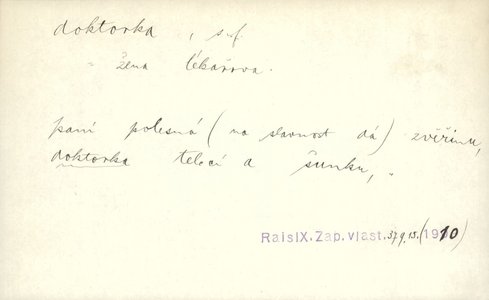 doktorka, sf.
= žena lékařova.
paní polesná (na slavnost dá) zvěřinu,
doktorka telecí a šunku,
RaisIX. Zap. vlast. 379.15. (1910)